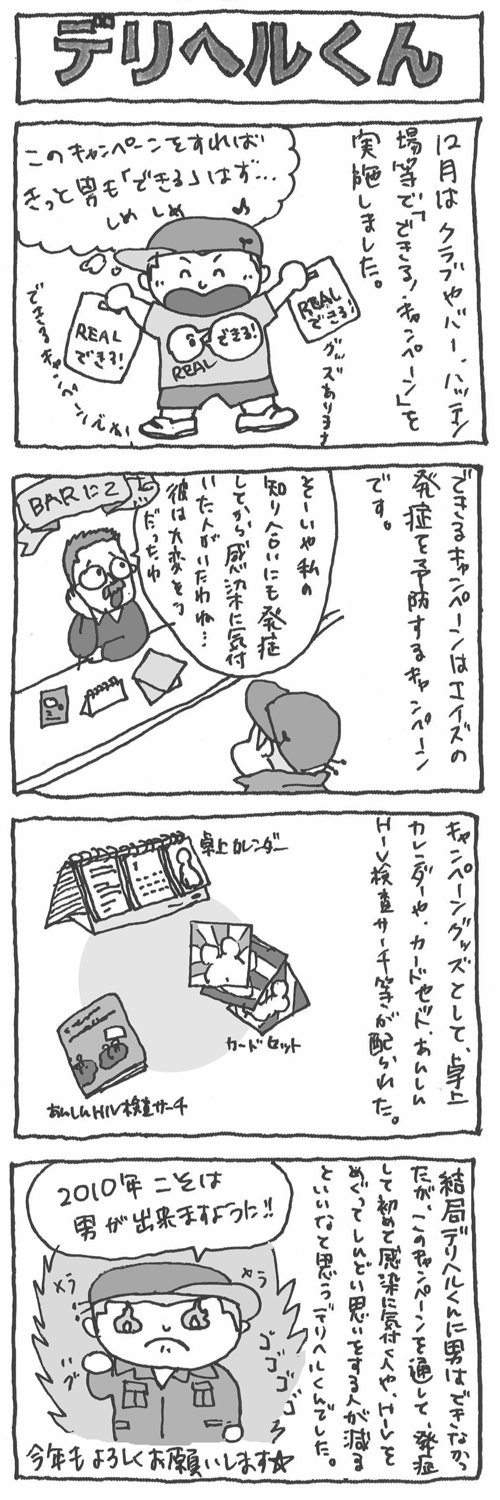 デリヘルくん
12月はクラブやバー、ハッテン
場等で「できる!キャンペーン」を
実施しました。
このキャンペーンをすれば
きっと男も「できる」はず…
しめしめ
REAL
できる!
REAL
できる!
できる!
REAL
できるキャンペーンでーす
グッズあります
できるキャンペーンはエイズの
発症を予防するキャンペーン
です。
そーいや私の
知り合いにも発症
してから感染に気付
いた人がいたわね…
彼は大変そう
だったわ
BARにて
キャンペーングッズとして、卓上
カレンダーや、カードセット、あんしん
HIV検査サーチ等が配られた。
卓上カレンダー
カードセット
あんしんHIV検査サーチ
結局デリヘルくんに男はできなかっ
たが、このキャンペーンを通して、発症
して初めて感染に気付く人や、HIVを
めぐってしんどい思いをする人が減る
といいなと思うデリヘルくんでした。
2010年こそは
男が出来ますように!!
メラ
メラ
グッ
ゴゴゴゴ
今年もよろしくお願いします☆